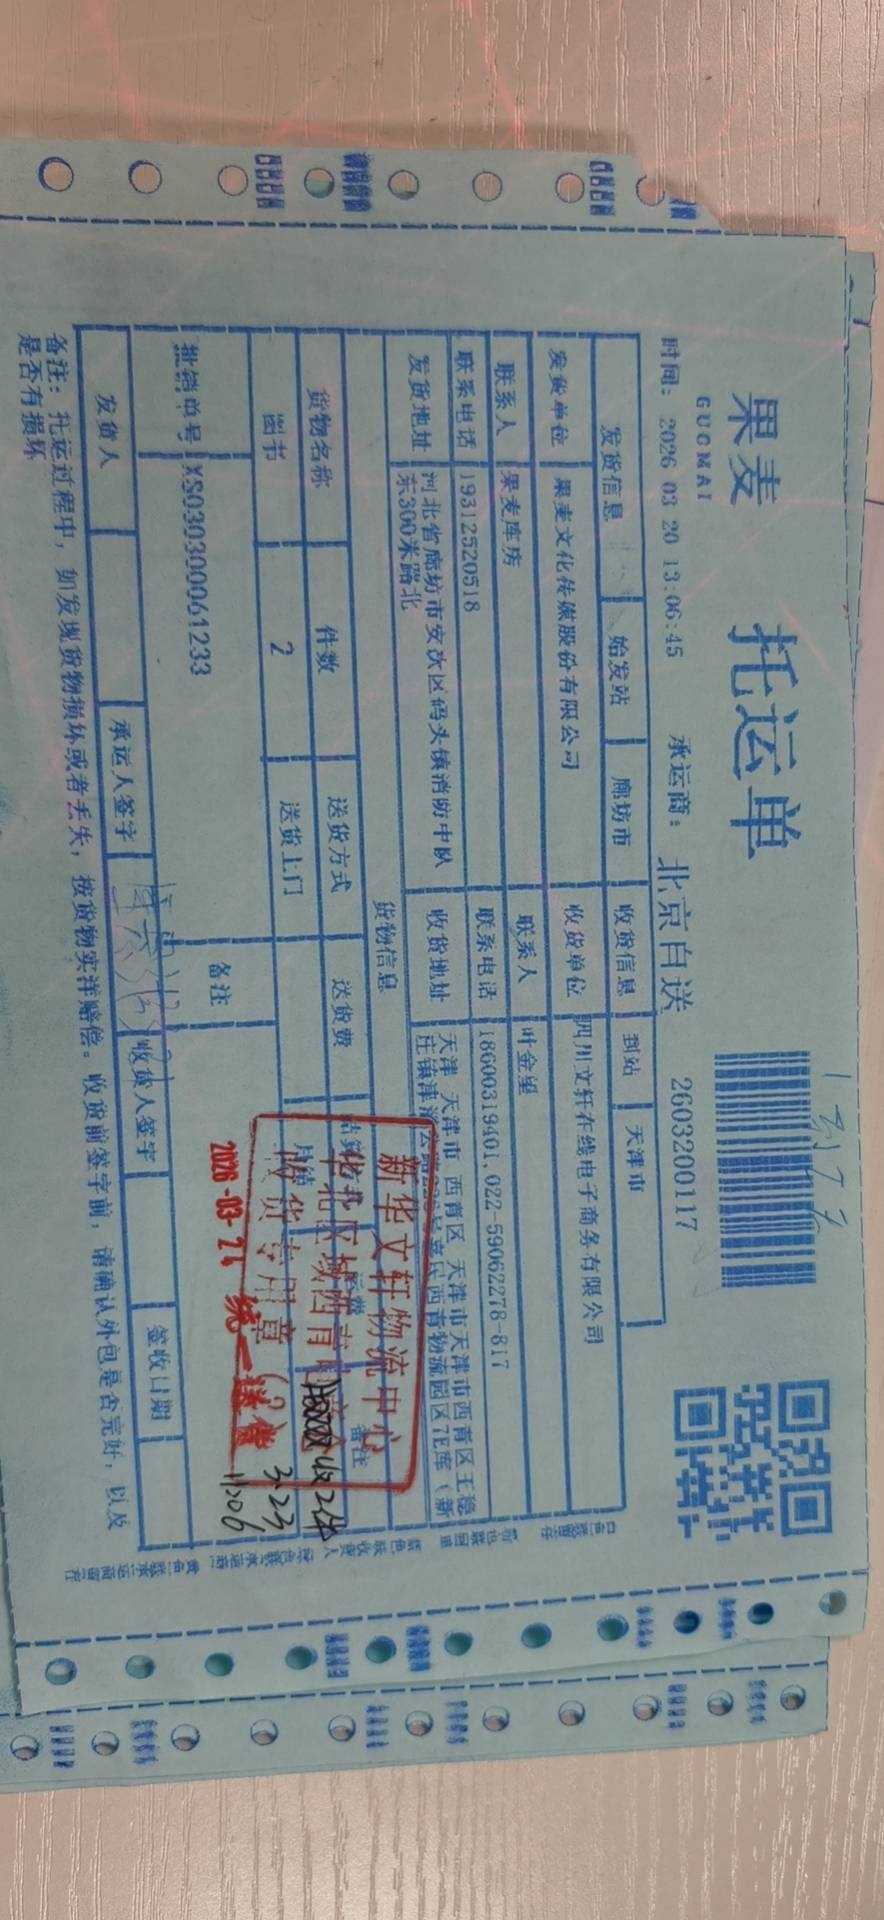 果麦 托运单
GUOMAI
时间: 2026-03-20 13:06:45 承运商: 北京自送 2603200117
发货信息 始发站 廊坊市 收货信息 到站 天津市
发货单位 果麦文化传媒股份有限公司 收货单位 四川文轩在线电子商务有限公司
联系人 果麦库房 联系人 叶金星
联系电话 19312520518 联系电话 18600319401,022-59062278-817
发货地址 河北省廊坊市安次区码头镇消防中队 收货地址 天津 天津市 西青区 天津市天津市西青区王稳
东300米路北 庄镇津 西青物流园区7E库(新
货物信息
货物名称 件数 送货方式 送货费 备注
图书 2 送货上门
批销单号 XS030300061233 备注
新华文轩物流中心
华北区域西青
收货专用章 (2)
收2件
3.23
11206
2026-03-24 统一
发货人 承运人签字 收货人签字 签收日期
备注: 托运过程中, 如发现货物损坏或者丢失, 按货物实洋赔偿。收货前签字前, 请确认外包是否完好, 以及
是否有损坏